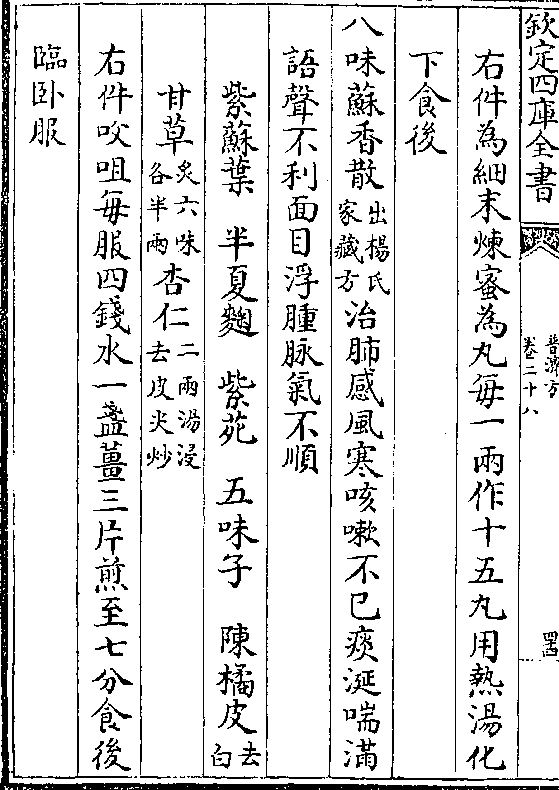 欽定四庫全書
普濟方
卷二十八
右件為細末煉蜜為丸每一兩作十五丸用熱湯化
下食後
八味蘇香散出楊氏家藏方治肺感風寒咳嗽不已痰涎喘滿
語聲不利面目浮腫脉氣不順
紫蘇葉 半夏麴 紫苑 五味子 陳橘皮去白
甘草炙六味各半兩杏仁二兩湯浸去皮尖炒
右件㕮咀每服四錢水一盞薑三片煎至七分食後
臨卧服